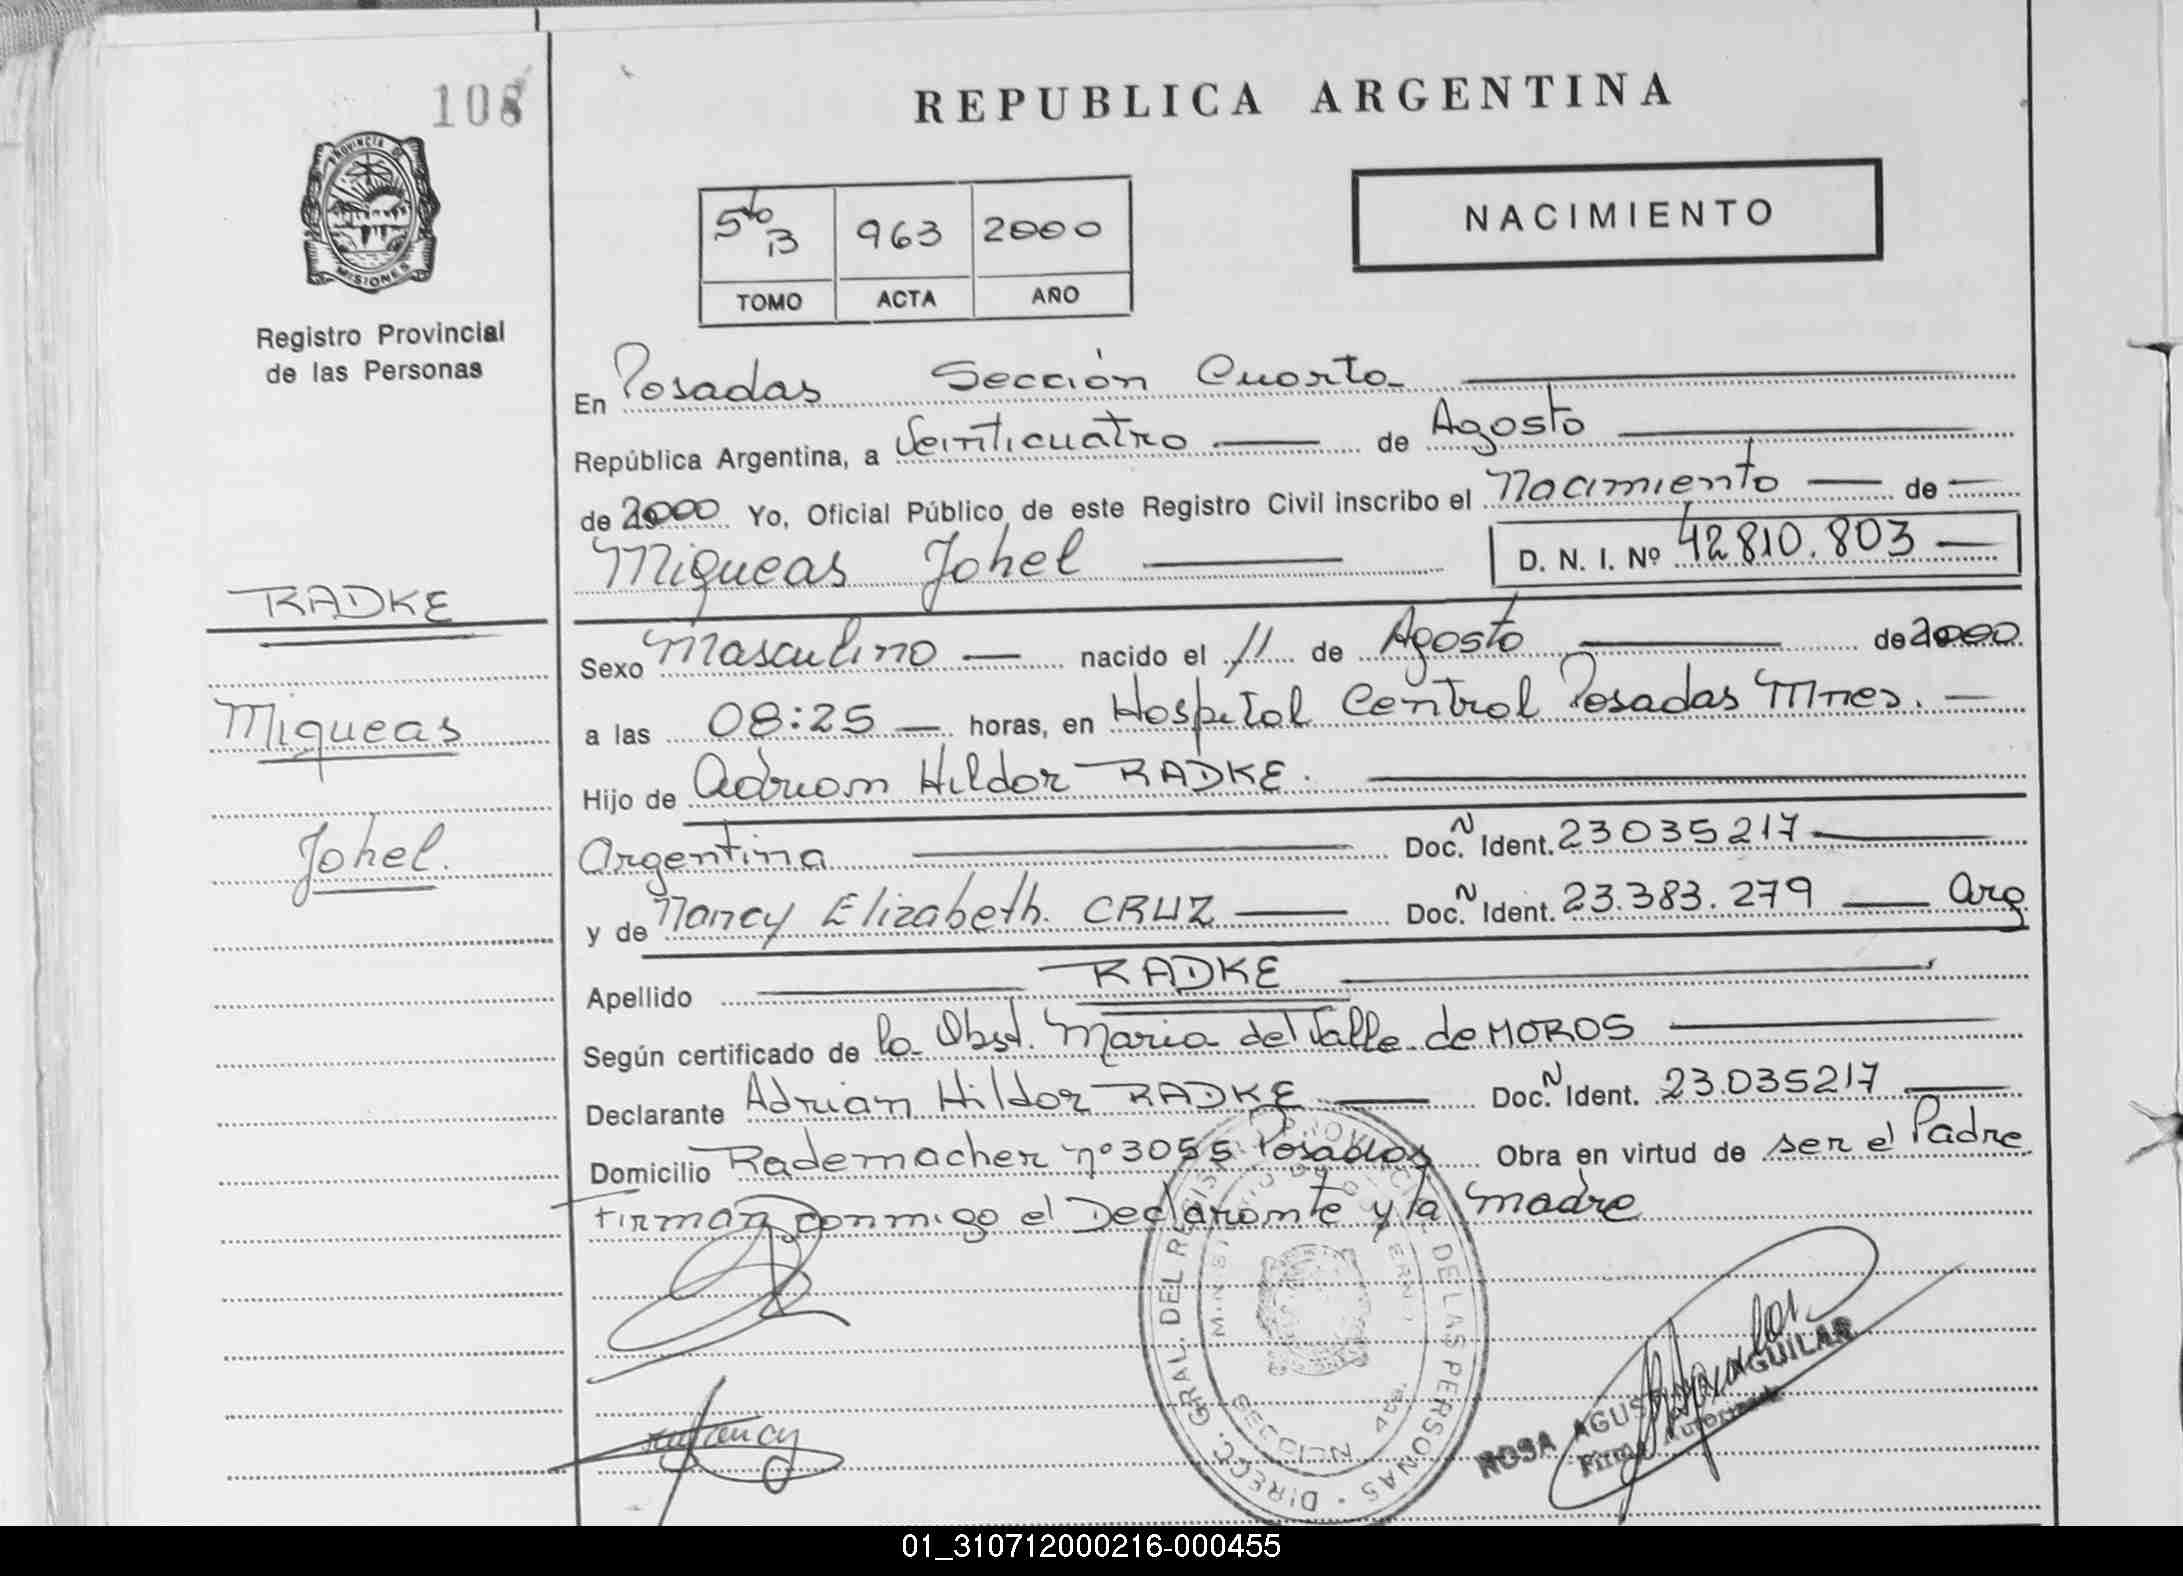 108
REPUBLICA ARGENTINA
PROVINCIA DE
MISIONES
Registro Provincial
de las Personas
5to B 963 2000
TOMO ACTA AÑO
NACIMIENTO
En Posadas Sección Cuarta
República Argentina, a Veinticuatro de Agosto
de 2000 Yo, Oficial Público de este Registro Civil inscribo el Nacimiento de
Miqueas Johel D. N. I. Nº 42810.803
RADKE
Miqueas
Johel.
Sexo Masculino nacido el 11 de Agosto de 2000
a las 08:25 horas, en Hospital Central Posadas Mnes.
Hijo de Adrian Hildor RADKE.
Argentina Doc. N Ident. 23035217
y de Nancy Elizabeth. CRUZ Doc. N Ident. 23.383.279 Arg
Apellido RADKE
Según certificado de la Obst. Maria del Valle de MOROS
Declarante Adrian Hildor RADKE Doc. N Ident. 23.035217
Domicilio Rademacher nº 3055 Posadas Obra en virtud de ser el Padre
Firman conmigo el Declarante y la madre
DIRECC. GRAL. DEL REGIST. PROVINCIAL DE LAS PERSONAS
SECCION
Nancy
ROSA AGUILAR
Firma Autorizada
01_310712000216-000455